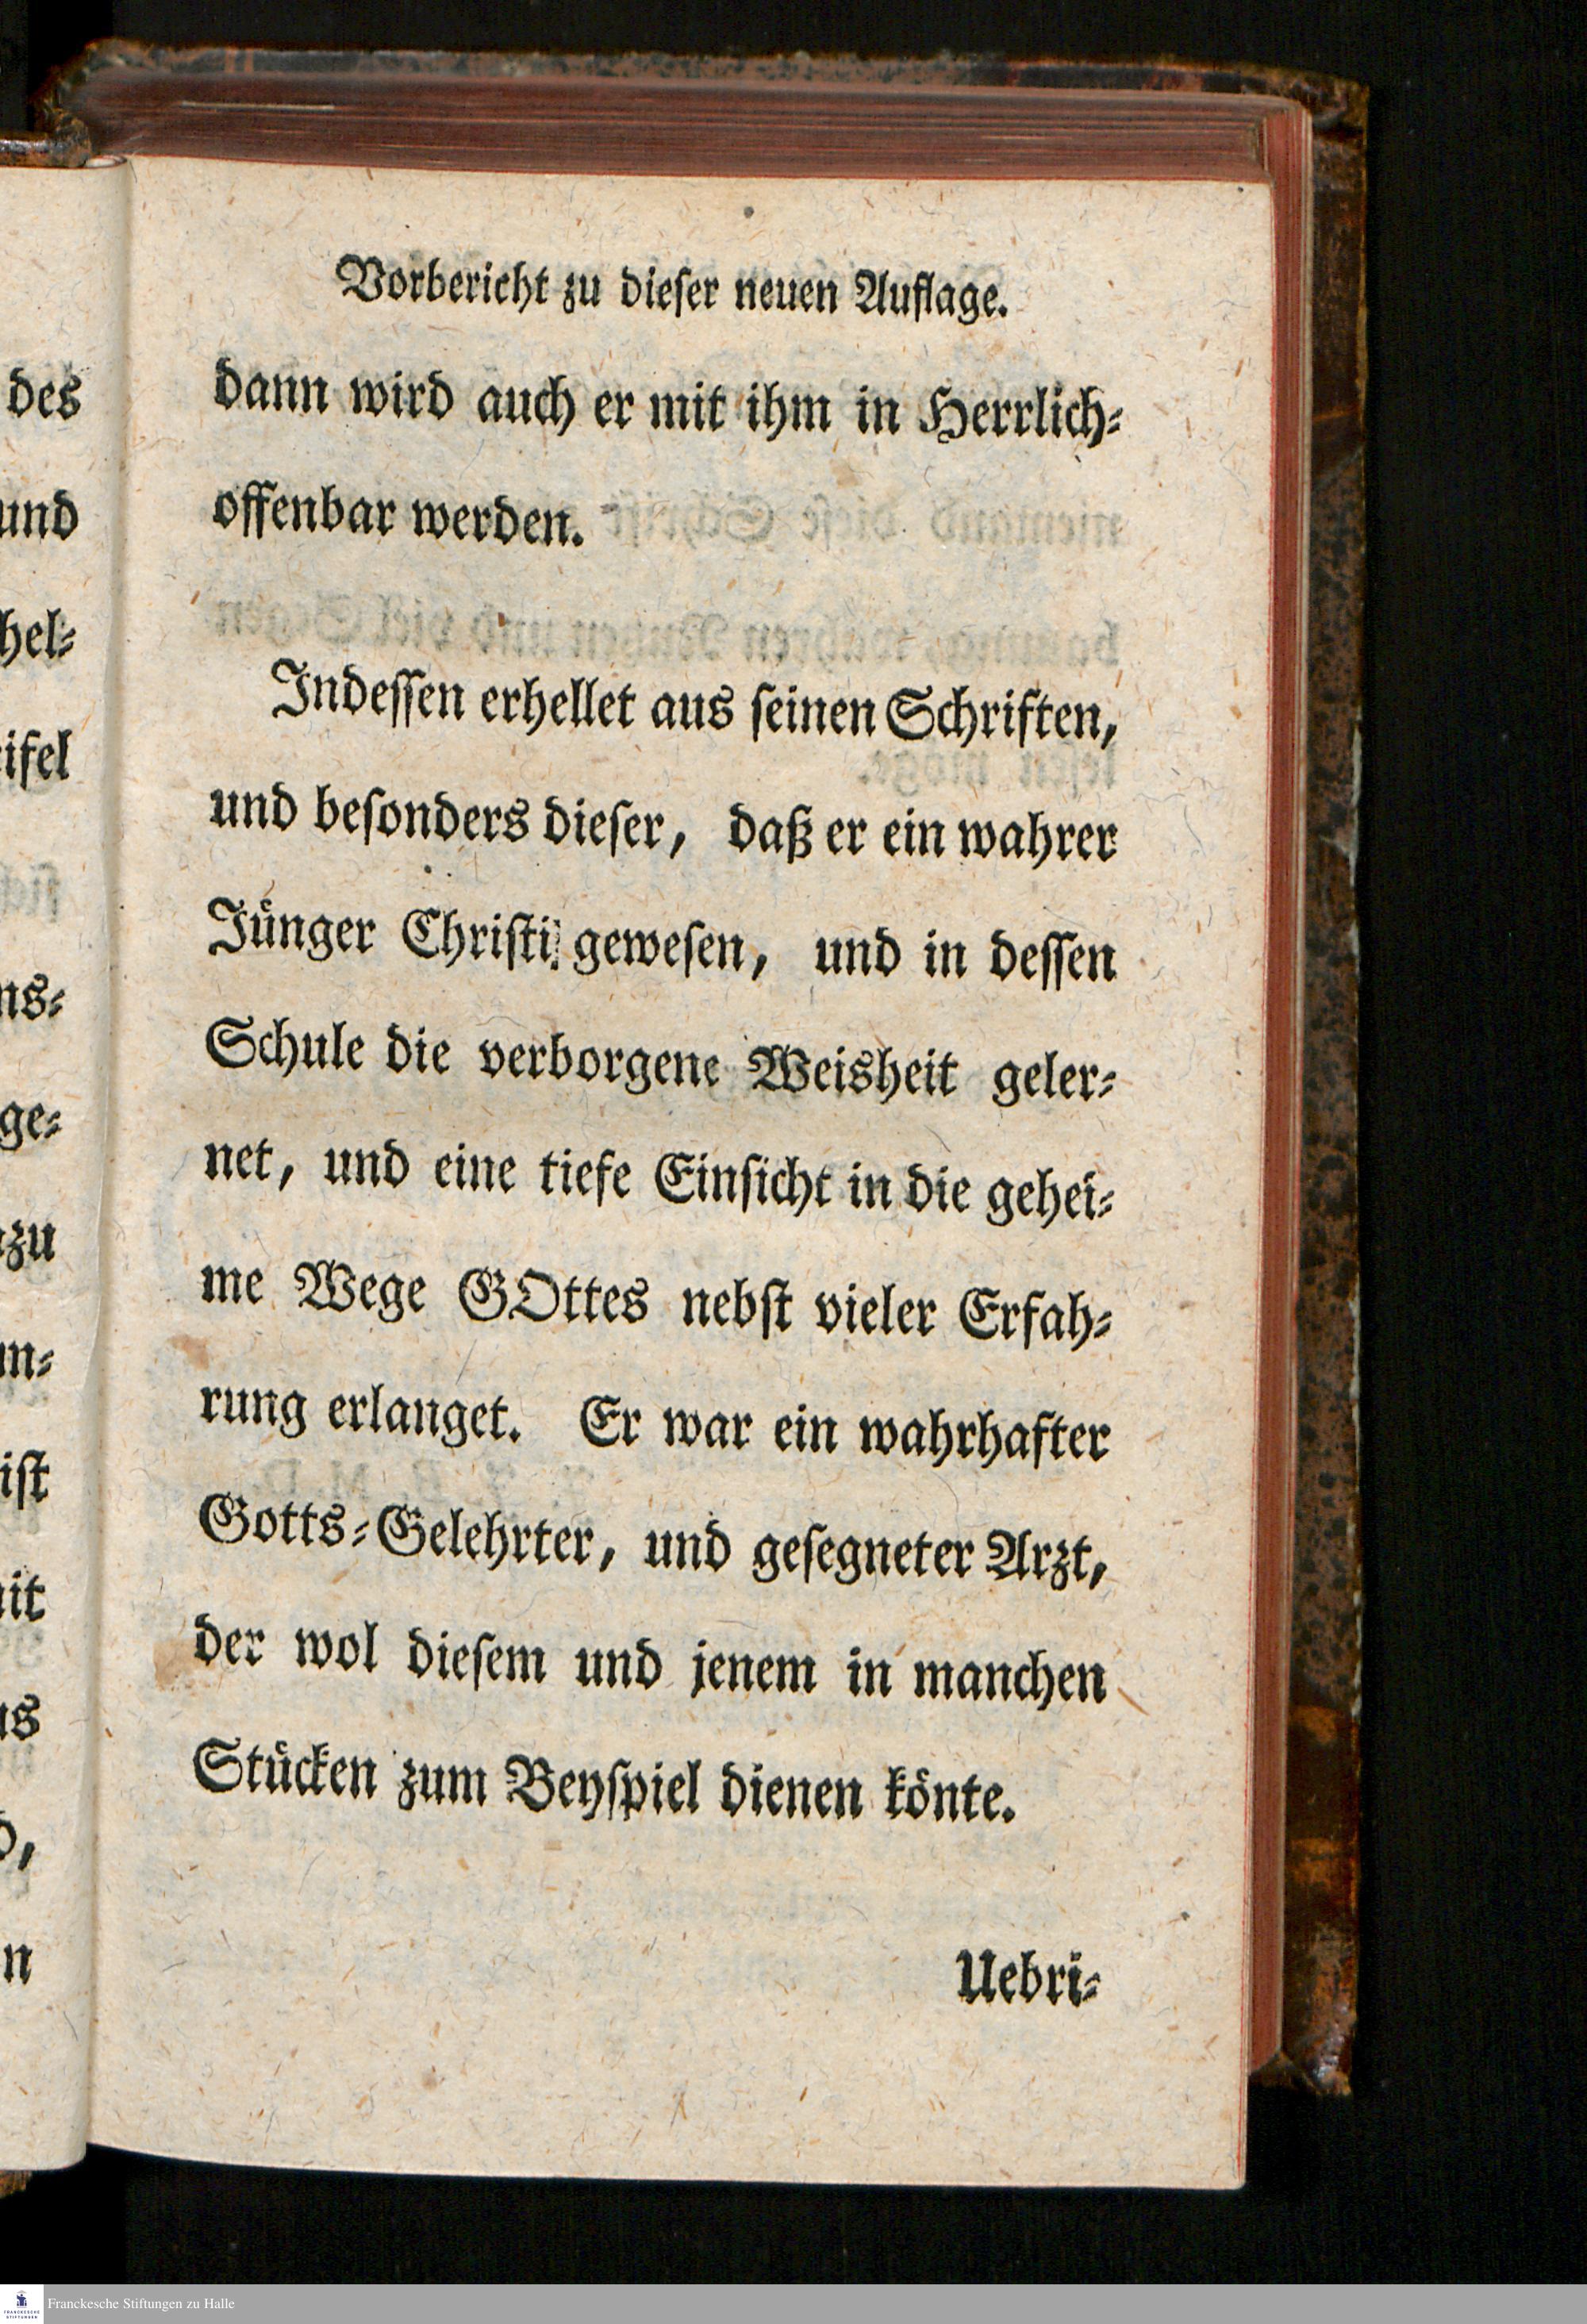 Vorbericht zu dieſer neuen Auflage.
dann wird auch er mit ihm in Herrlich⸗
offenbar werden.
Indeſſen erhellet aus ſeinen Schriften,
und beſonders dieſer, daß er ein wahrer
Jünger Chriſti gewesen, und in deſſen
Schule die verborgene Weisheit geler⸗
net, und eine tiefe Einſicht in die gehei⸗
me Wege GOttes nebſt vieler Erfah⸗
rung erlanget. Er war ein wahrhafter
Gotts⸗Gelehrter, und geſegneter Arzt,
der wol dieſem und jenem in manchen
Stücken zum Beyſpiel dienen könte.
Uebri⸗
des
und
hel⸗
ifel
ns⸗
ge⸗
zu
iſt
Franckesche Stiftungen zu Halle
FRANCKESCHE
STIFTUNGEN